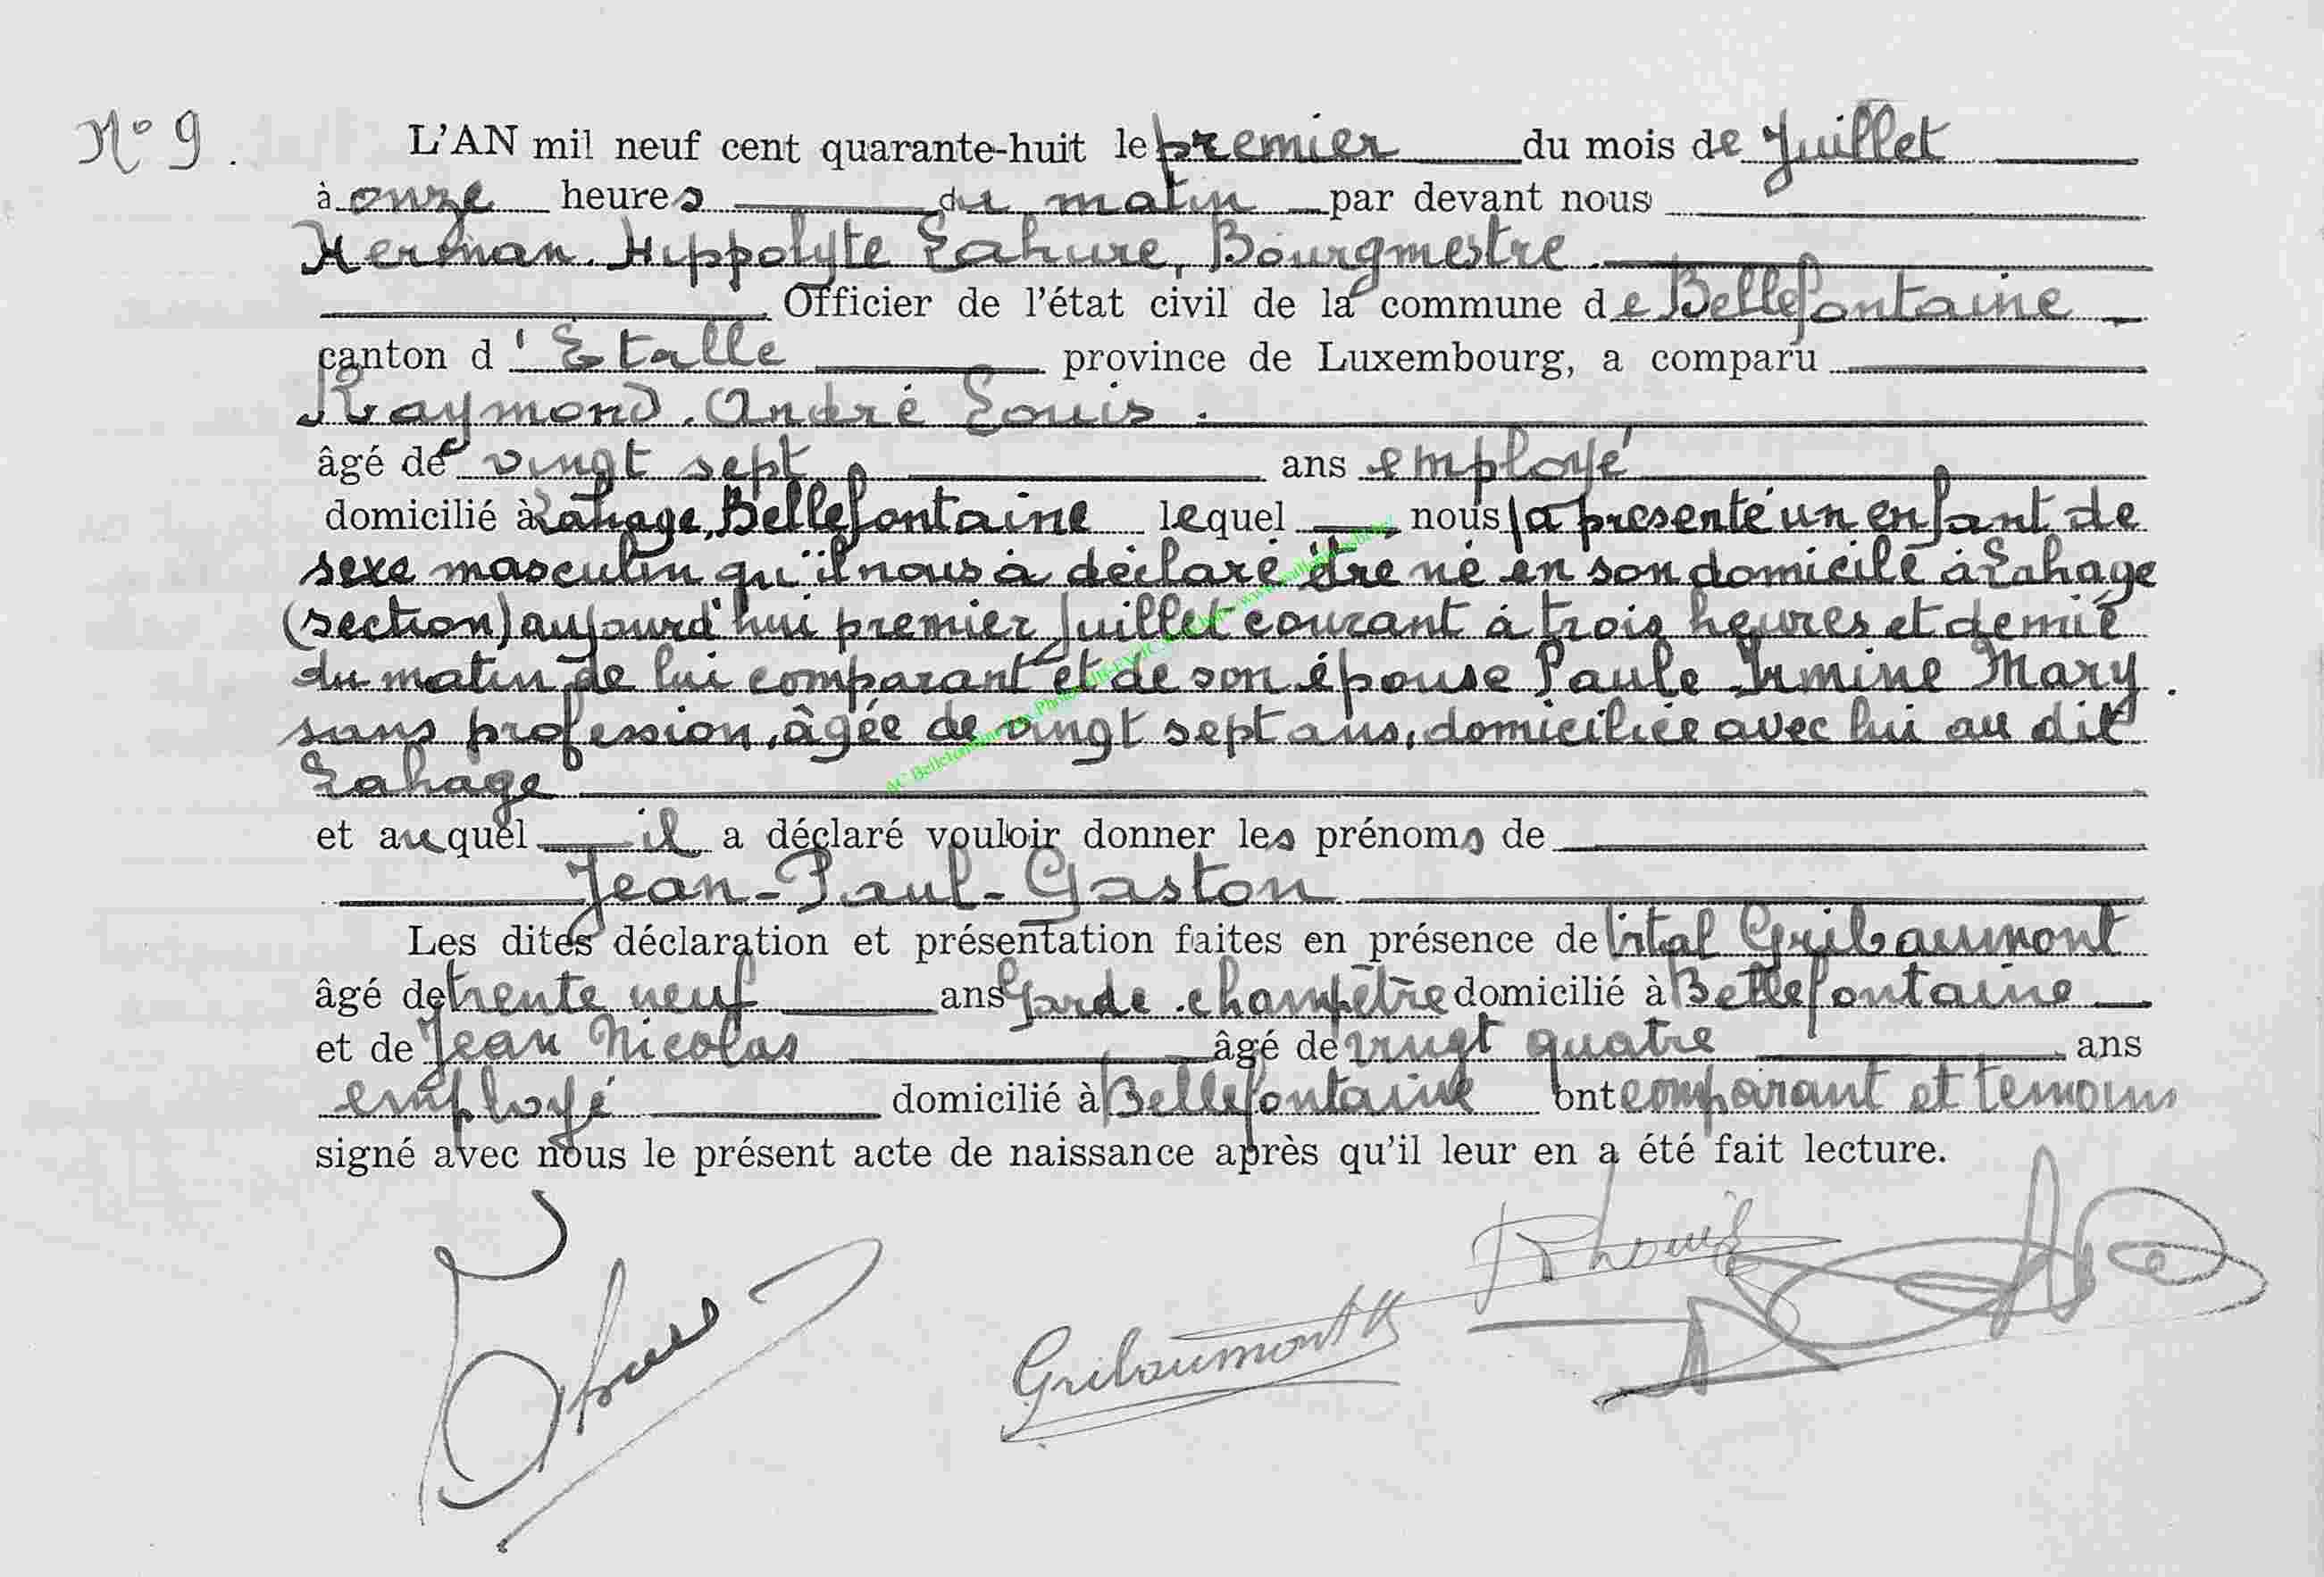 N° 9.
L'AN mil neuf cent quarante-huit le premier du mois de Juillet
à onze heures du matin par devant nous
Herman. Hippolyte Lahure, Bourgmestre.
Officier de l'état civil de la commune de Bellefontaine
canton d'Etalle province de Luxembourg, a comparu
Raymond. André Louis.
âgé de vingt sept ans employé
domicilié à Lahage, Bellefontaine lequel nous a présenté un enfant de
sexe masculin qu'il nous à déclaré être né en son domicile à Lahage
(section) aujourd'hui premier Juillet courant à trois heures et demie
du matin de lui comparant et de son épouse Paule Irmine Mary.
sans profession, âgée de vingt sept ans, domiciliée avec lui au dit
Lahage
et auquel il a déclaré vouloir donner les prénoms de
Jean-Paul-Gaston
Les dites déclaration et présentation faites en présence de Vital Gribaumont
âgé de trente neuf ans Garde.champêtre domicilié à Bellefontaine
et de Jean Nicolas âgé de vingt quatre ans
employé domicilié à Bellefontaine ont comparant et temoins
signé avec nous le présent acte de naissance après qu'il leur en a été fait lecture.
Gribaumont